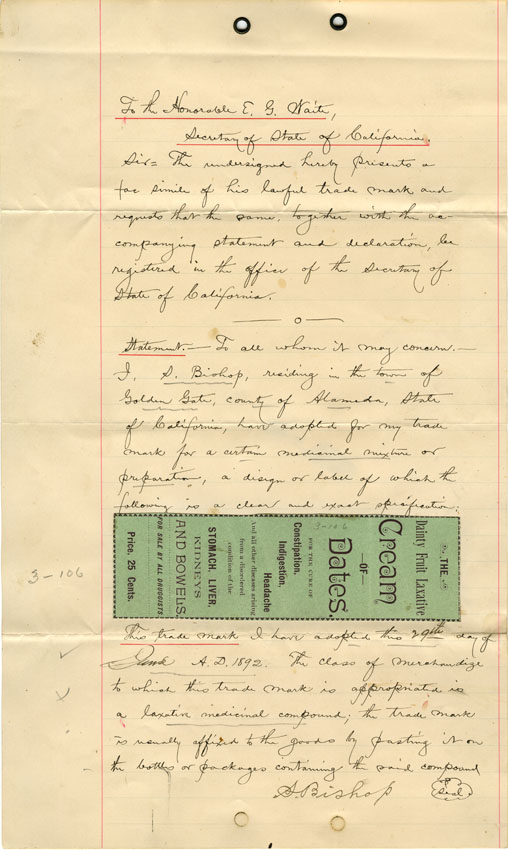 To the Honorable E. G. Waite,
Secretary of State of California.
Sir= The undersigned hereby presents a
fac simile of his lawful trade mark and
requests that the same, together with the ac-
companying statement and declaration, be
registered in the office of the Secretary of
State of California.
— o —
Statement.— To all whom it may concern.—
I, S. Bishop, residing in the town of
Golden Gate, county of Alameda, State
of California, have adopted for my trade
mark for a certain medicinal mixture or
preparation, a design or label of which the
following is a clear and exact specification:
THE
Dainty Fruit Laxative
Cream
—OF—
Dates.
3-106
FOR THE CURE OF
Constipation,
Indigestion,
Headache
And all other diseases arising
from a disordered
condition of the
STOMACH, LIVER,
KIDNEYS
AND BOWELS
FOR SALE BY ALL DRUGGISTS
Price, 25 Cents.
3-106
This trade mark I have adopted this 29th day of
June A.D. 1892. The class of merchandize
to which this trade mark is appropriated is
a laxative medicinal compound; the trade mark
is usually affixed to the goods by pasting it on
the bottles or packages containing the said compound
S. Bishop
Seal